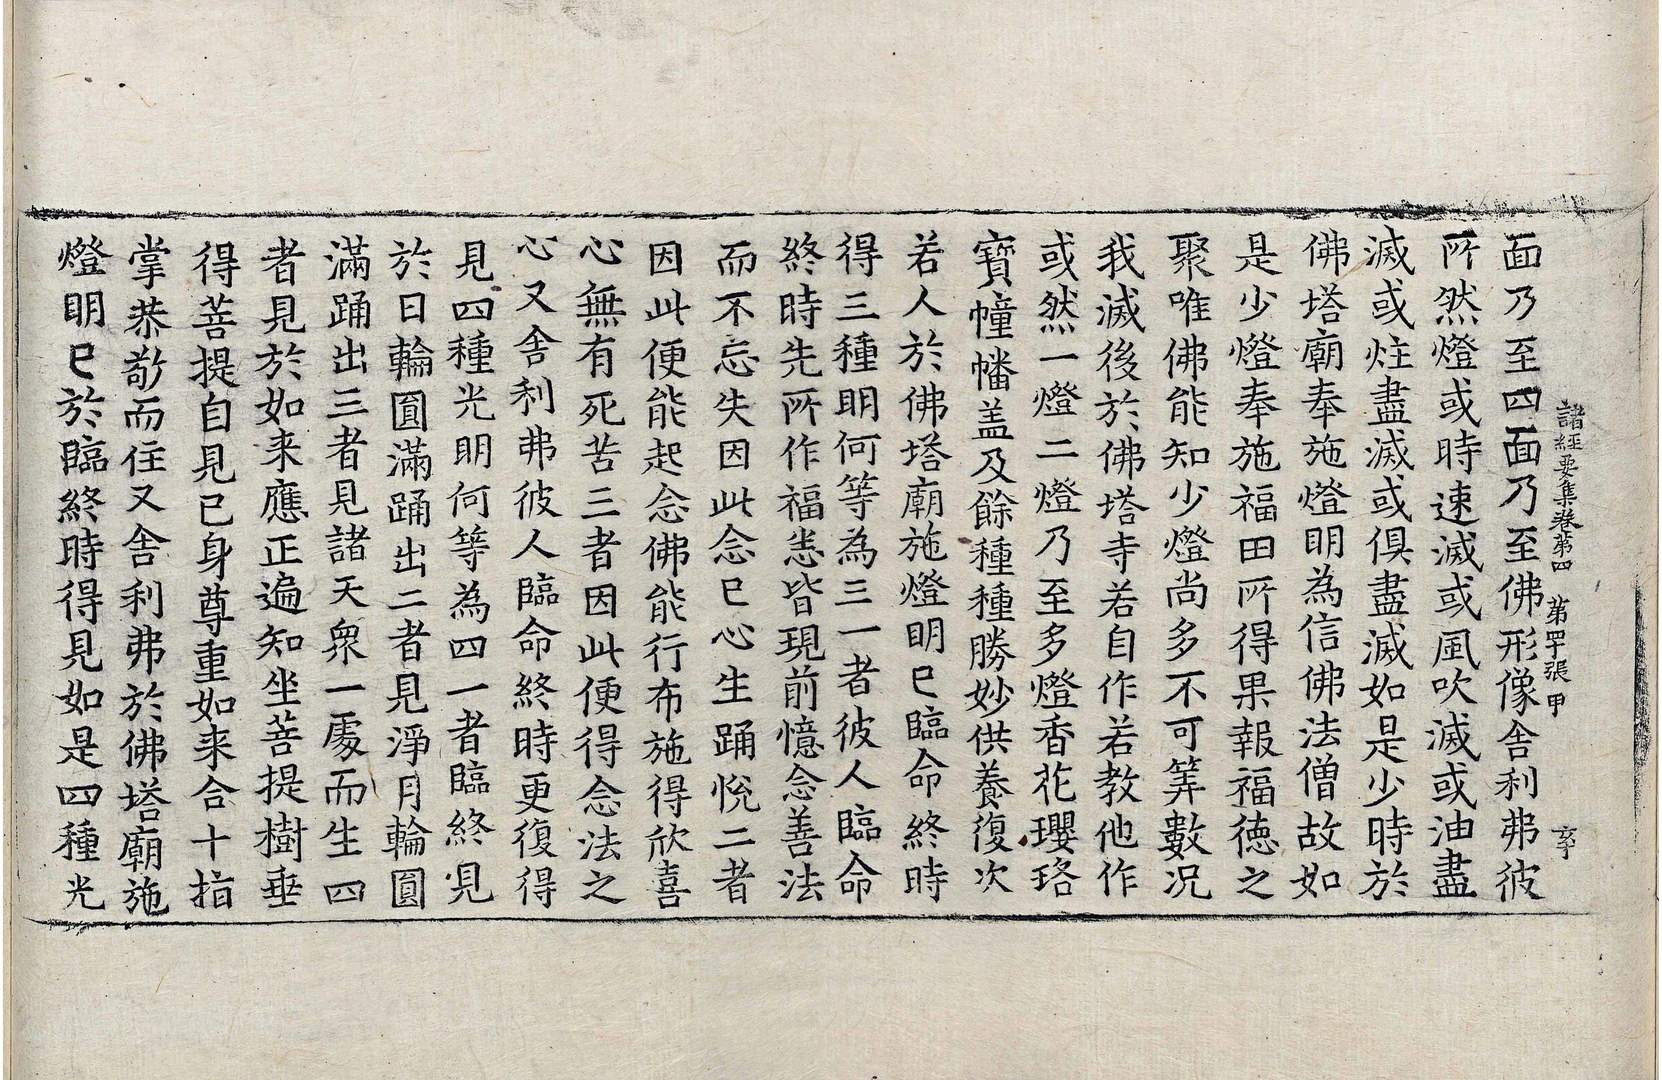 諸經要集卷第四　第罕張甲　亥
面乃至四面乃至佛形像舎利弗彼
所然燈或時速滅或風吹滅或油盡
滅或炷盡滅或俱盡滅如是少時於
佛塔廟奉施燈明為信佛法僧故如
是少燈奉施福田所得果報福徳之
聚唯佛能知少燈尚多不可筭數况
我滅後於佛塔寺若自作若教他作
或然一燈二燈乃至多燈香花瓔珞
寶幢幡盖及餘種種勝妙供養復次
若人於佛塔廟施燈明已臨命終時
得三種明何等為三一者彼人臨命
終時先所作福悉皆現前憶念善法
而不忘失因此念已心生踊悅二者
因此便能起念佛能行布施得欣喜
心無有死苦三者因此便得念法之
心又舎利弗彼人臨命終時更復得
見四種光明何等為四一者臨終見
於日輪圓滿踊出二者見淨月輪圓
滿踊出三者見諸天衆一處而生四
者見於如来應正遍知坐菩提樹垂
得菩提自見已身尊重如来合十指
掌恭敬而住又舎利弗於佛塔廟施
燈明已於臨終時得見如是四種光